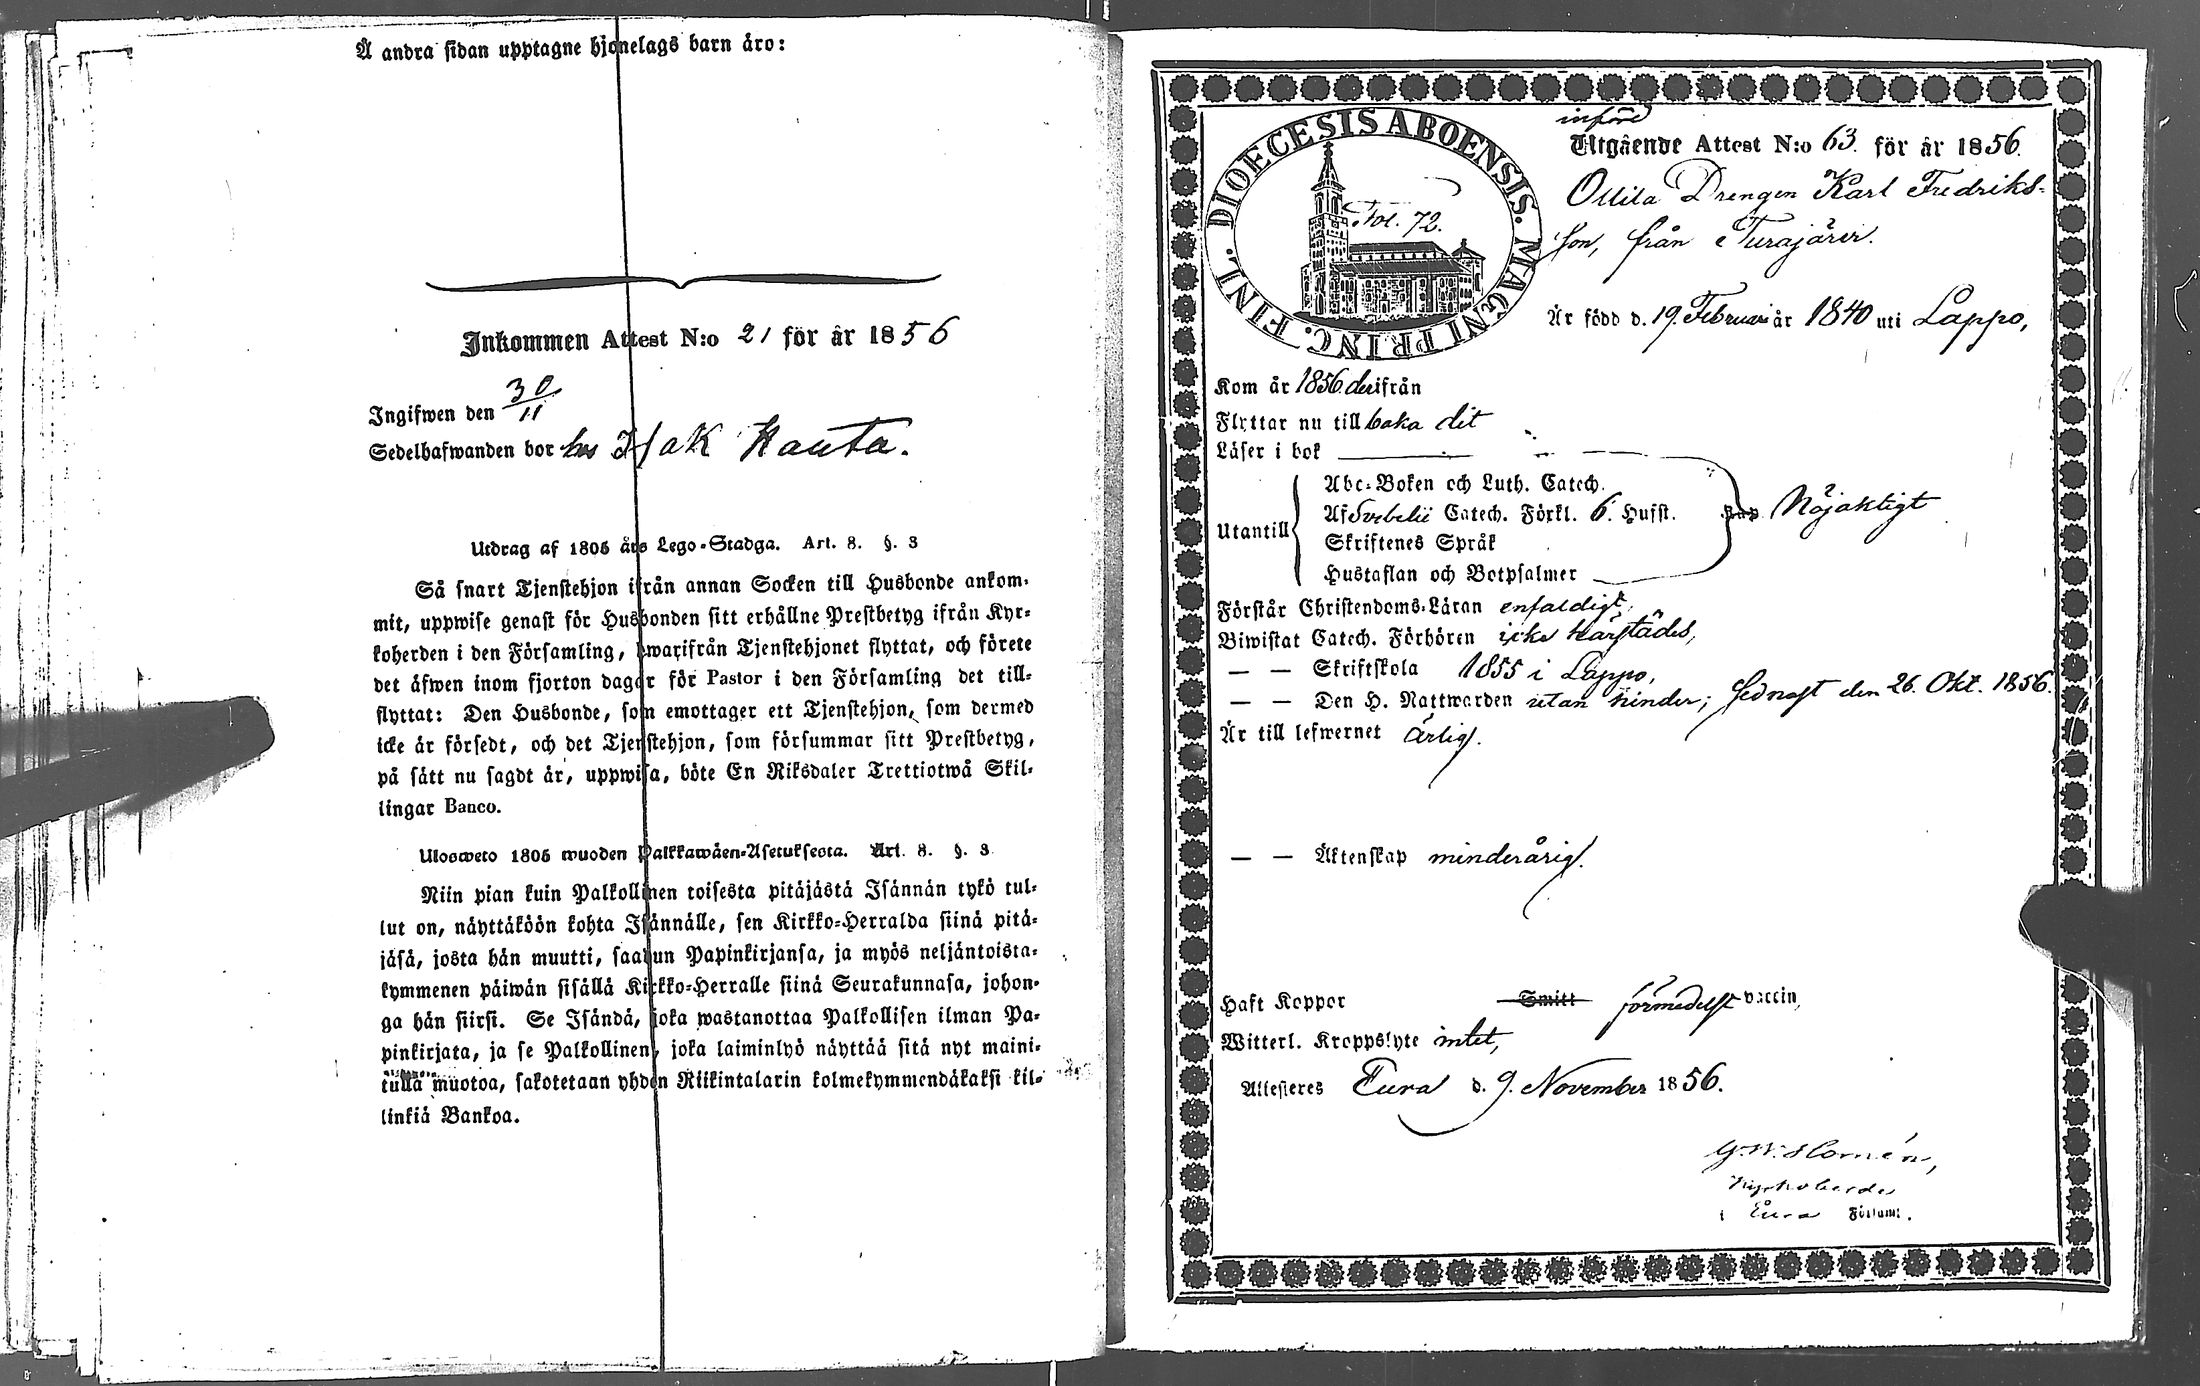 Å andra sidan upptagne hjonelags barn äro:
Inkommen Attest N:o 21 för år 1856
Ingifwen den 30/11
Sedelhafwanden bor hos Isak Kauta.
Utdrag af 1805 års Lego-Stadga. Art. 8. §. 3
Så snart Tjenstehjon ifrån annan Socken till Husbonde ankom-
mit, uppwise genast för Husbonden sitt erhållne Prestbetyg ifrån Kyr-
koherden i den Församling, hwarifrån Tjenstehjonet flyttat, och förete
det äfwen inom fjorton dagar för Pastor i den Församling det till-
flyttat: Den Husbonde, som emottager ett Tjenstehjon, som dermed
icke är försedt, och det Tjenstehjon, som försummar sitt Prestbetyg,
på sätt nu sagdt är, uppwisa, böte En Riksdaler Trettiotwå Skil-
lingar Banco.
Ulosweto 1805 wuoden Palkkawäen-Asetuksesta. Art. 8. §. 3
Niin pian kuin Palkollinen toisesta pitäjästä Isännän tykö tul-
lut on, näyttäköön kohta Isännälle, sen Kirkko-Herralda siinä pitä-
jäsä, josta hän muutti, saadun Papinkirjansa, ja myös neljäntoista-
kymmenen päiwän sisällä Kirkko-Herralle siinä Seurakunnasa, johon-
ga hän siirsi. Se Isändä, joka wastanottaa Palkollisen ilman Pa-
pinkirjata, ja se Palkollinen, joka laiminlyö näyttää sitä nyt maini-
tulla muotoa, sakotetaan yhden Riikintalarin kolmekymmendäkaksi kil-
linkiä Bankoa.
införd
Utgående Attest N:o 63. för år 1856.
DIOECESIS ABOENSIS. MAGNI PRINC. FINL.
Fol. 72.
Drengen Karl Fredriks-
son, från Turajärvi.
Är född d. 19. Februari år 1840 uti Lappo,
Kom år 1856 derifrån
Flyttar nu tillbaka dit
Läser i bok
Utantill
Abc-Boken och Luth. Catech.
Af Svebelii Catech. Förkl. 6. Hufst.
Skriftenes Språk
Hustaflan och Botpsalmer
Nöjaktigt
Förstår Christendoms-Läran enfaldigt,
Biwistat Catech. Förhören icke härstädes,
— — Skriftskola 1855 i Lappo,
— — Den H. Nattwarden utan hinder; sednast den 26. Okt. 1856.
Är till lefwernet ärlig.
— — Äktenskap minderårig.
Haft Koppor Smitt förmedelst vaccin,
Witterl. Kroppslyte intet,
Attesteres Eura d. 9. November 1856.
G. W. Homén,
Kyrkoherde
i Eura Församl.